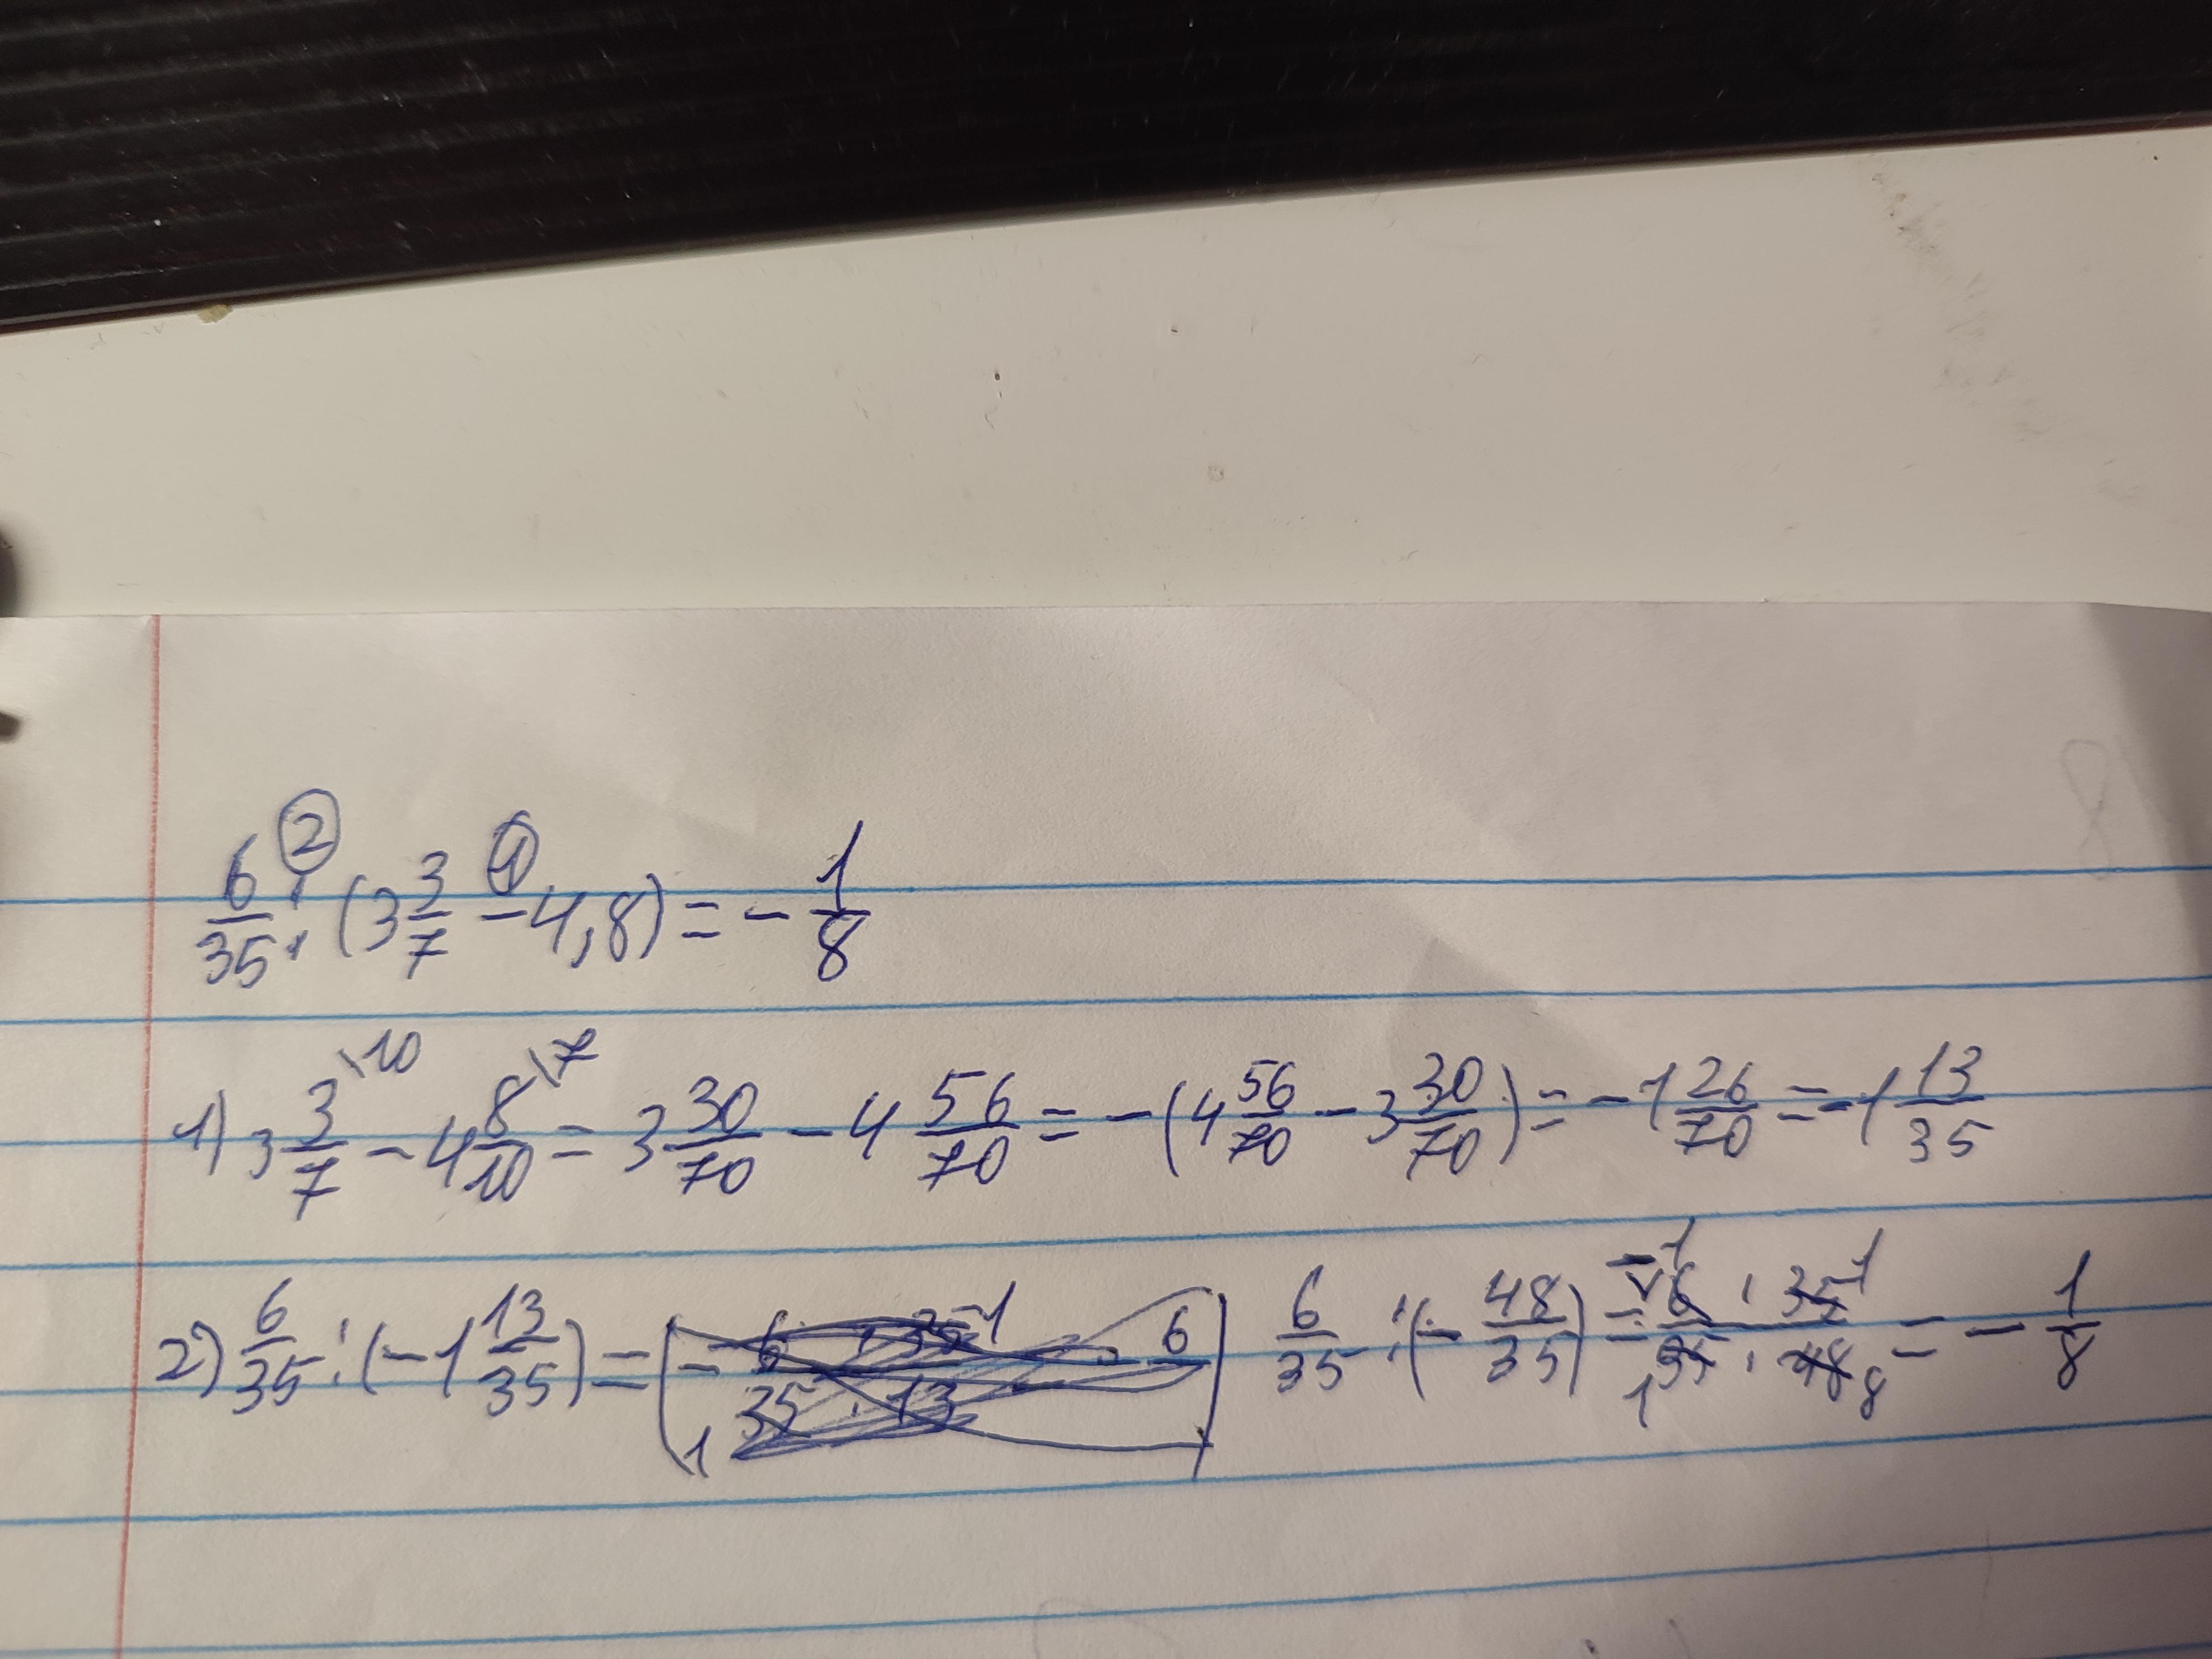 6/35 : (3 3/7 - 4,8) = - 1/8
1) 3 3/7 \10 - 4 8/10 \7 = 3 30/70 - 4 56/70 = - (4 56/70 - 3 30/70) = - 1 26/70 = - 1 13/35
2) 6/35 : (- 1 13/35) = 6/35 : (- 48/35) = - 6 · 35 / 35 · 48 = - 1/8